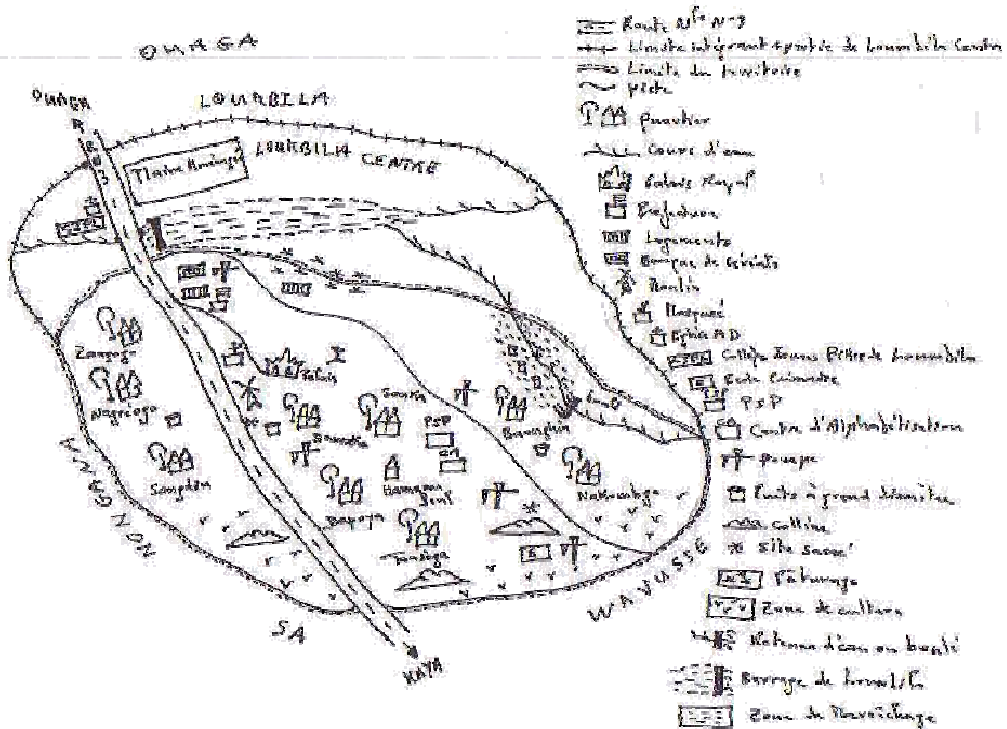 OUAGA
OUAGA
LOUMBILA
LOUMBILA CENTRE
Plaine Aménagé
Zongogo
Nagréogo
Sampdou
NONGANA
Palais
PSP
Hamagani
Bapoya
Tansiga
Nakoumtoga
SA
WAVUSSE
KAYA
Route Nle N-3
Limite intégrant + partie de Loumbila Centre
Limite du territoire
piste
quartier
Cours d'eau
Palais Royal
Préfecture
Logements
Banque de Céréales
Moulin
Mosquée
Eglise A.D
Collège Jeunes Filles de Loumbila
Ecole Primaire
PSP
Centre d'Alphabétisation
pompe
Puits à grand diamètre
colline
Site sacré
Pâturage
Zone de culture
Retenue d'eau ou boulé
Barrage de Loumbila
Zone de Maraîchage